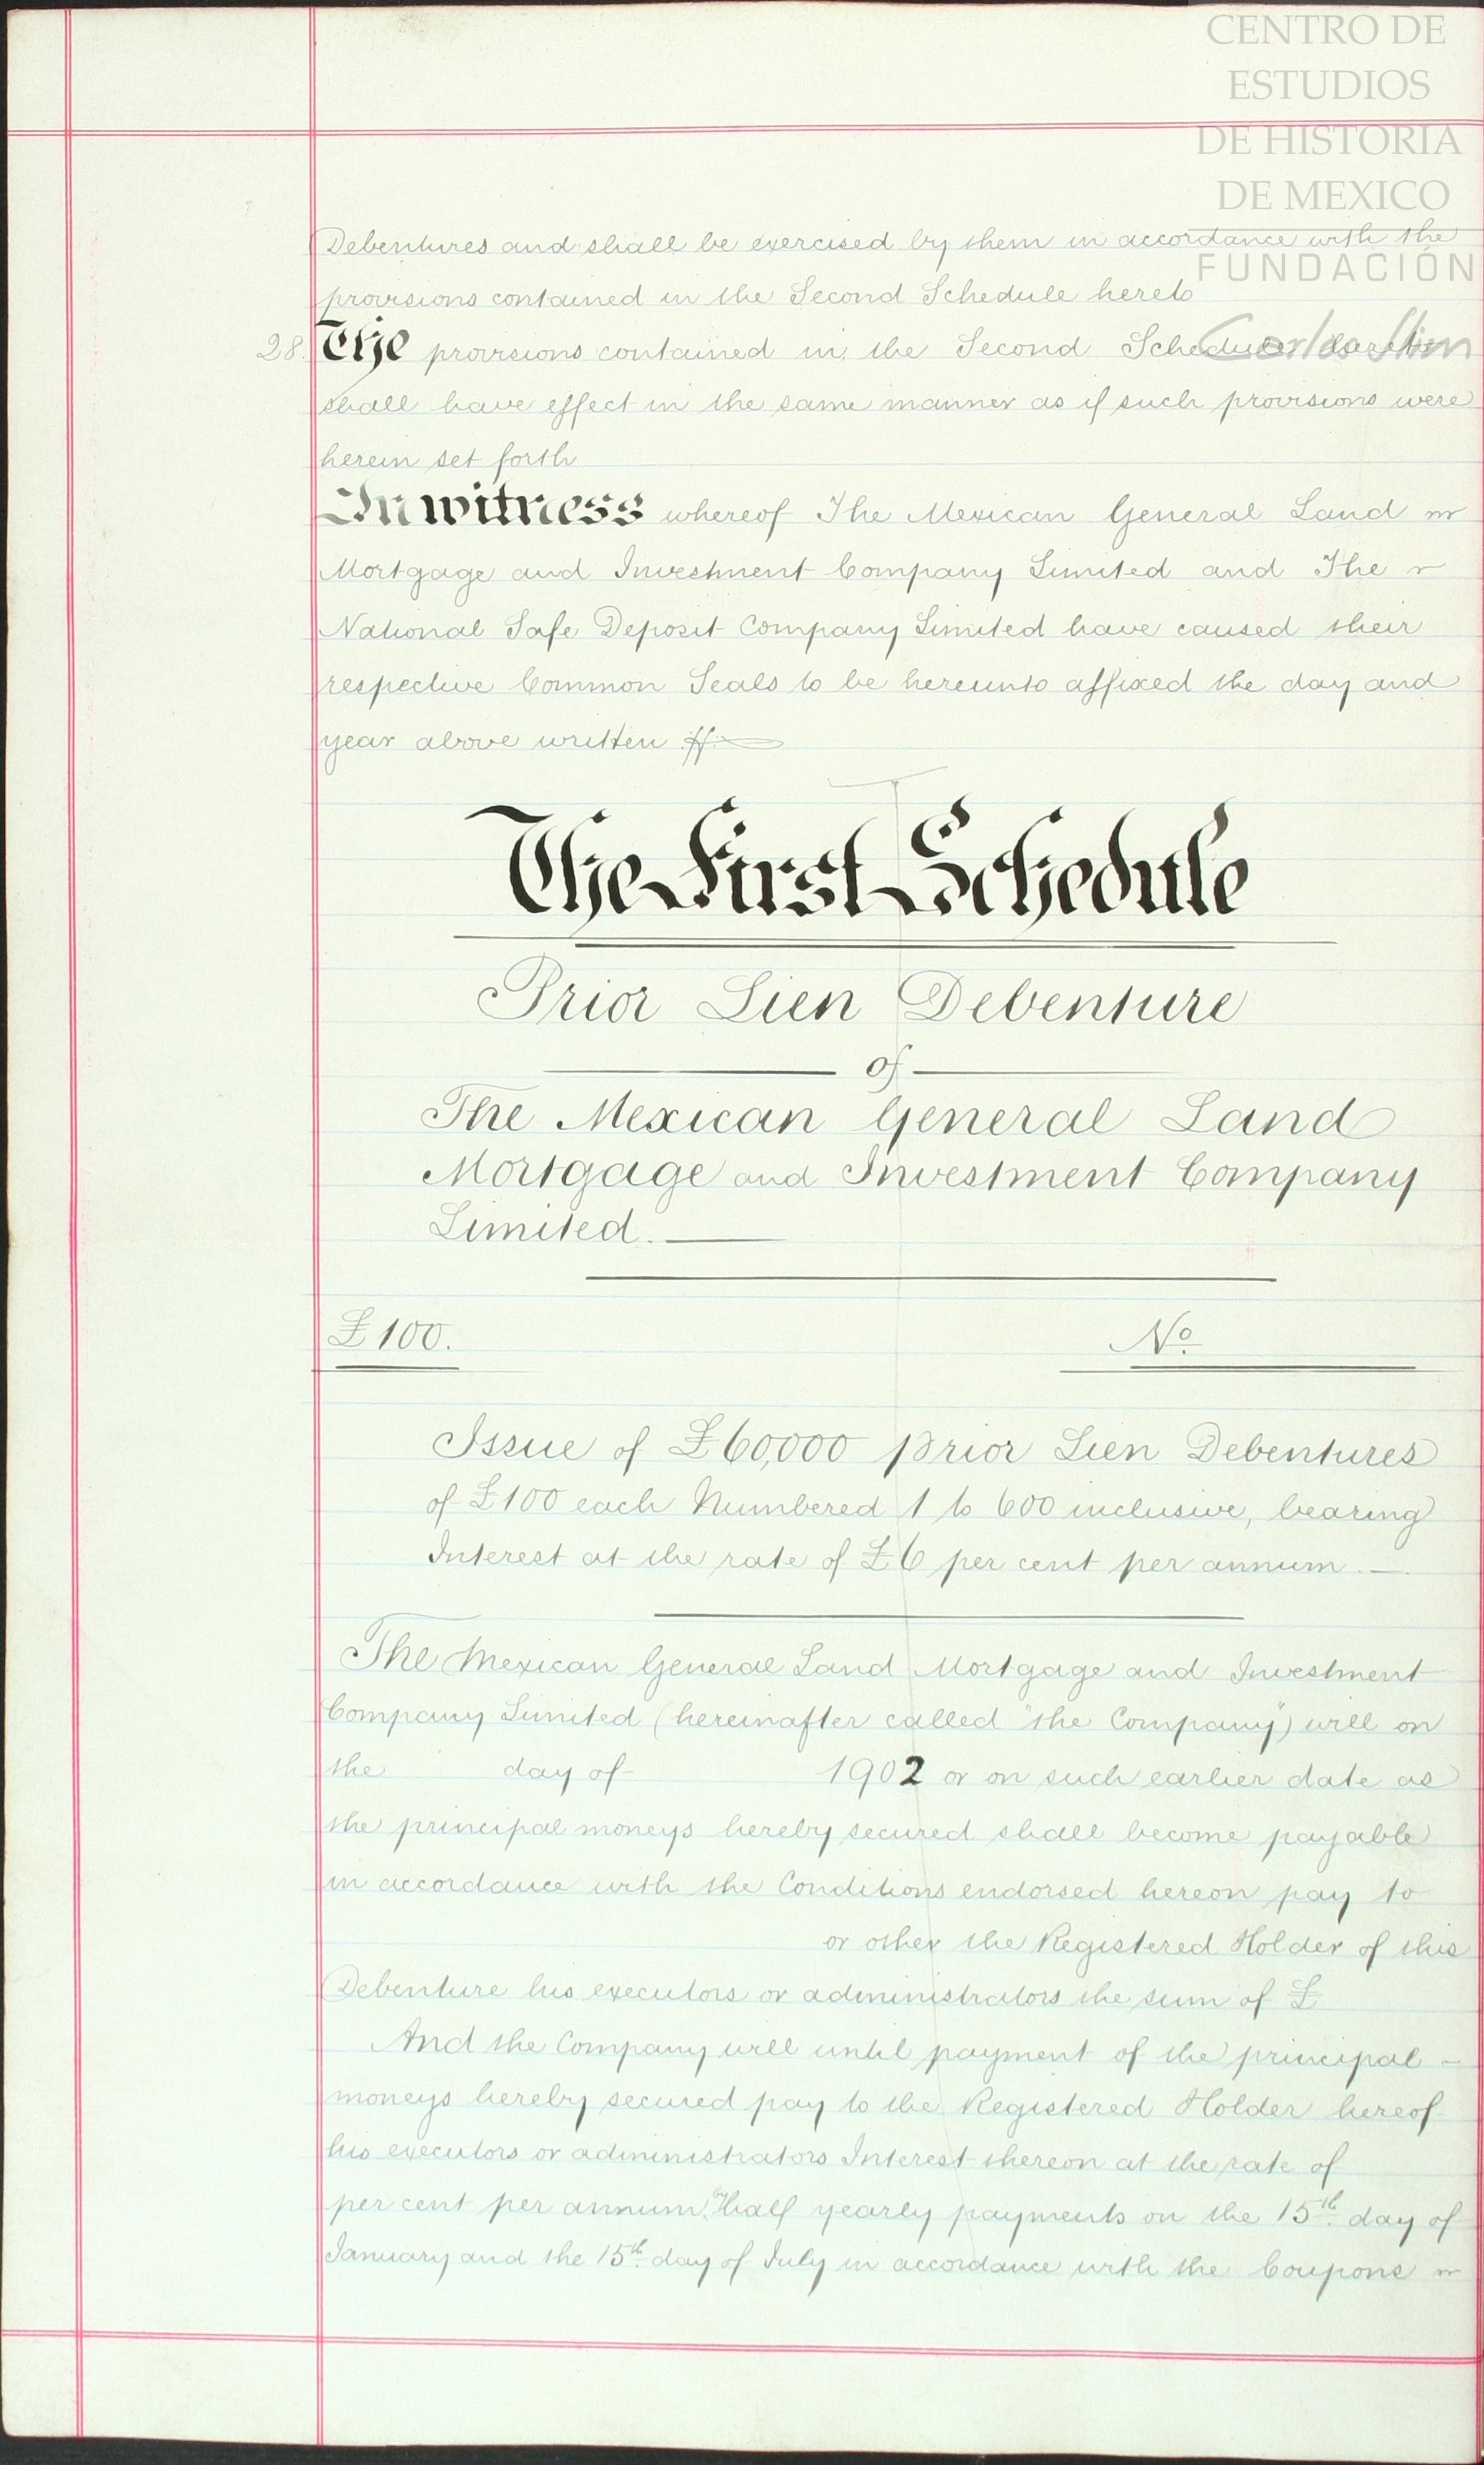 CENTRO DE
ESTUDIOS
DE HISTORIA
DE MEXICO
FUNDACIÓN
Carlos Slim
Debentures and shall be exercised by them in accordance with the
provisions contained in the Second Schedule hereto
28. The provisions contained in the Second Schedule hereto
shall have effect in the same manner as if such provisions were
herein set forth
In witness whereof The Mexican General Land
Mortgage and Investment Company Limited and The
National Safe Deposit Company Limited have caused their
respective Common Seals to be hereunto affixed the day and
year above written
The First Schedule
Prior Lien Debenture
of
The Mexican General Land
Mortgage and Investment Company
Limited.
£100. No.
Issue of £60,000 prior Lien Debentures
of £100 each Numbered 1 to 600 inclusive, bearing
Interest at the rate of £6 per cent per annum.
The Mexican General Land Mortgage and Investment
Company Limited (hereinafter called "the Company") will on
the day of 1902 or on such earlier date as
the principal moneys hereby secured shall become payable
in accordance with the Conditions endorsed hereon pay to
or other the Registered Holder of this
Debenture his executors or administrators the sum of £
And the Company will until payment of the principal
moneys hereby secured pay to the Registered Holder hereof
his executors or administrators Interest thereon at the rate of
per cent per annum by half yearly payments on the 15th day of
January and the 15th day of July in accordance with the Coupons